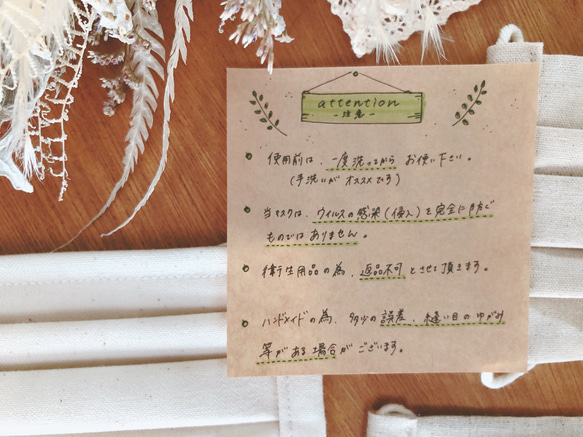 attention
-注意-
使用前は、一度洗ってから お使い下さい。
(手洗いが オススメです)
当マスクは、ウィルスの感染(侵入)を完全に防ぐ
ものでは ありません。
衛生用品の為、返品不可 とさせて頂きます。
ハンドメイドの為、多少の誤差、縫い目のゆがみ
等がある場合が ございます。